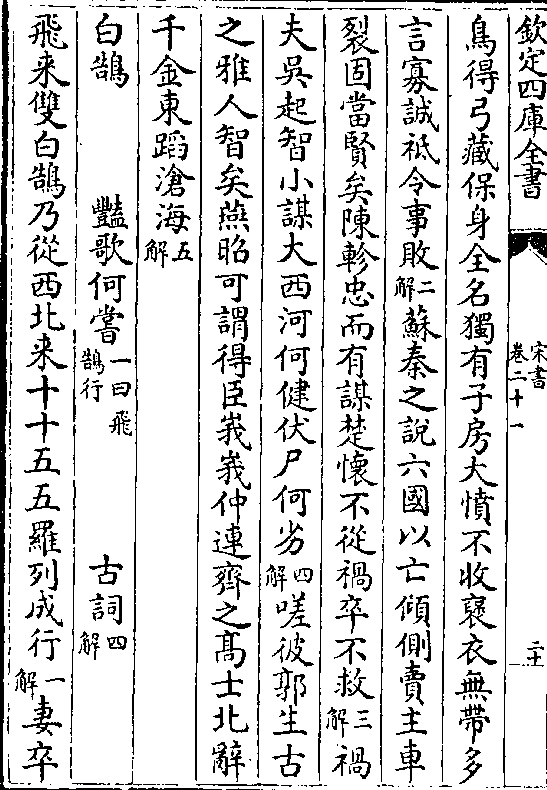 欽定四庫全書
宋書
卷二十一
二十
鳥得弓藏保身全名獨有子房大憤不收襃衣無帶多
言寡誠祗令事敗二解蘇秦之說六國以亡傾側賣主車
裂固當賢矣陳軫忠而有謀楚懷不從禍卒不救三解禍
夫吳起智小謀大西河何健伏尸何劣四解嗟彼郭生古
之雅人智矣燕昭可謂得臣峩峩仲連齊之高士北辭
千金東蹈滄海五解
白鵠 豔歌何嘗一曰飛鵠行 古詞四解
飛来雙白鵠乃從西北来十十五五羅列成行一解妻卒